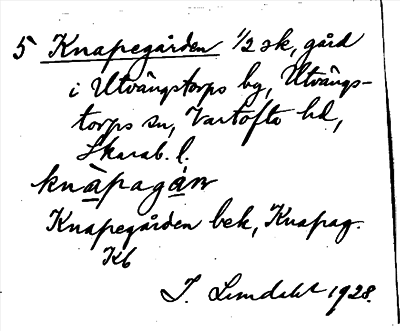 5 Knapegården 1/2 sk, gård
i Utvängstorps by, Utvängs-
torps sn, Vartofta hd,
Skarab. l.
knàpagáṇ
Knapegården bek, Knapag.
Kb
I. Lundahl 1928.